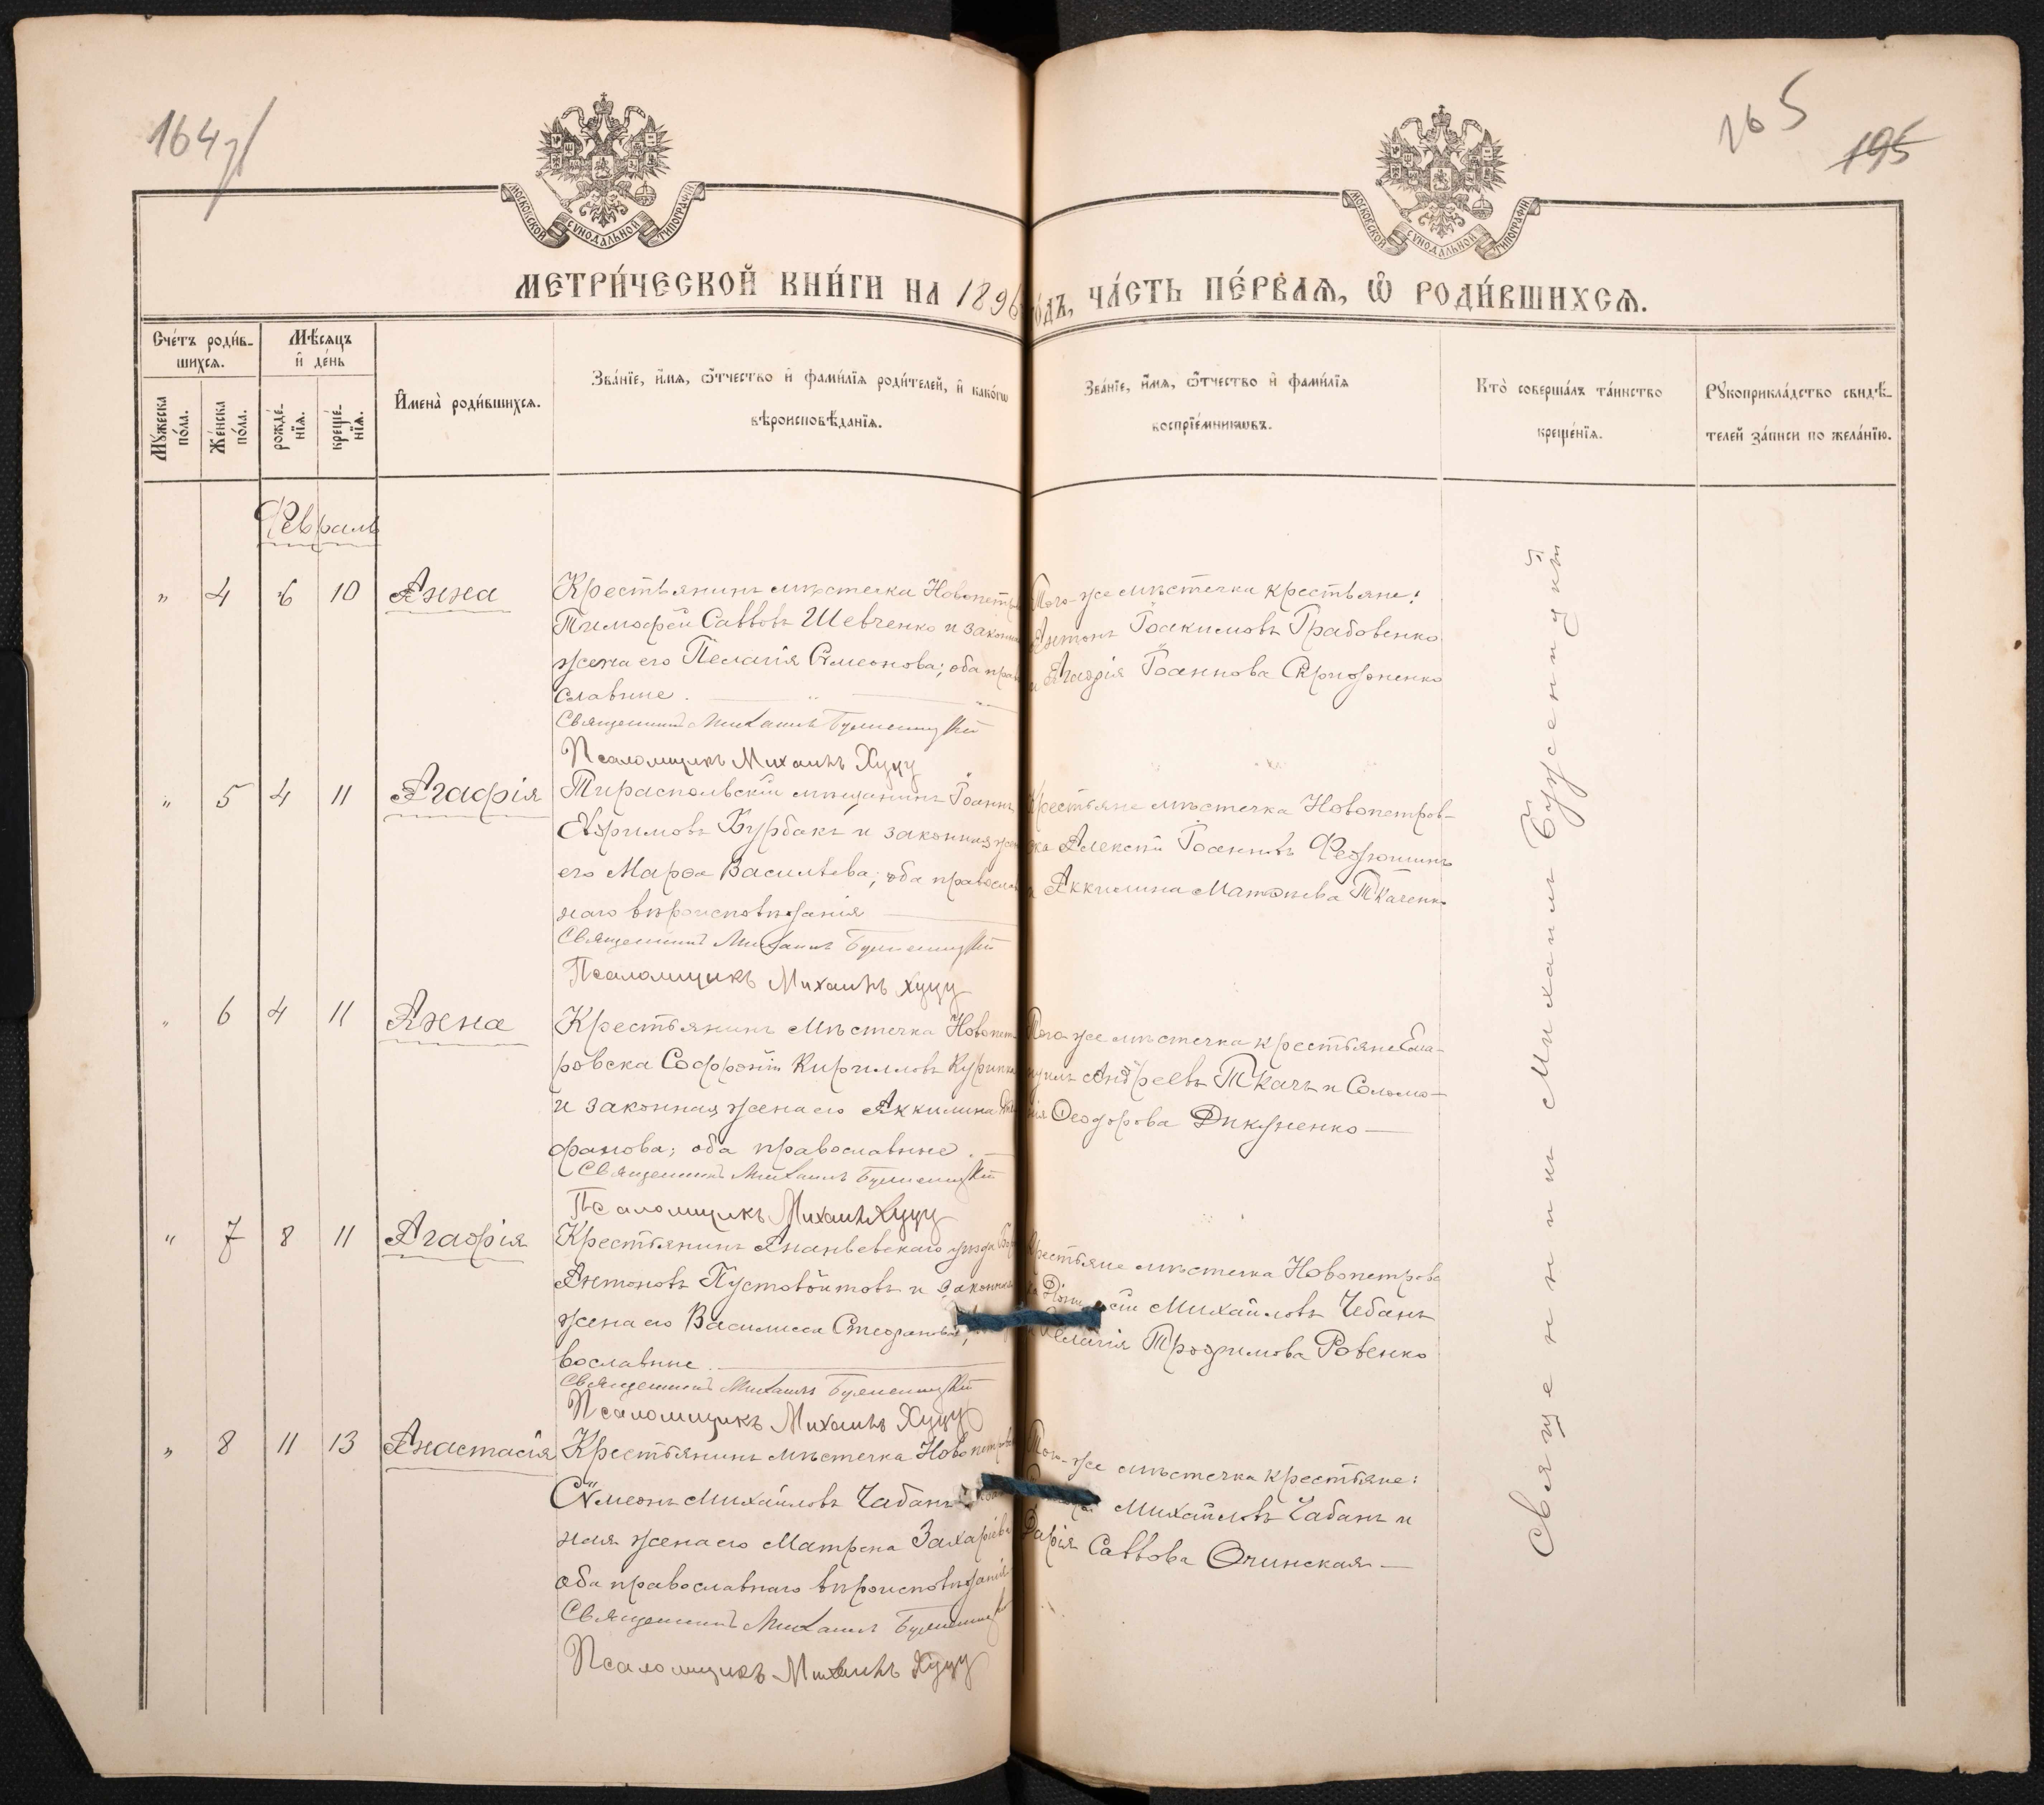 164 об
165
195
МОСКОВСКОЙ СѴНОДАЛЬНОЙ ТИПОГРАФІИ
МОСКОВСКОЙ СѴНОДАЛЬНОЙ ТИПОГРАФІИ
МЕТРИ́ЧЕСКОЙ КНИ́ГИ НА 1896 го́дъ, ЧА́СТЬ ПЕ́РВАѦ, Ѽ РОДИ́ВШИХСѦ.
Сче́тъ роди́в-
шихсѧ.
Мѣ́сѧцъ
и҆ де́нь
Мꙋ́жеска
по́ла.
Же́нска
по́ла.
рожде́-
нїѧ.
креще́-
нїѧ.
И҆мена̀ роди́вшихсѧ.
Зва́нїе, и҆́мѧ, ѻ҆́тчество и҆ фами́лїѧ роди́телей, и҆ како́гѡ
вѣроисповѣ́данїѧ.
Зва́нїе, и҆́мѧ, ѻ҆́тчество и҆ фами́лїѧ
воспрїе́мникѡвъ.
Кто̀ соверша́лъ та́инство
креще́нїѧ.
Рꙋкоприкла́дство свидѣ́-
телей за́писи по жела́нїю.
Февраль
" 4 6 10 Анна
Крестьянинъ мѣстечка Новопетр
Тимофей Савовъ Шевченко и закон
жена его Пелагія Симеонова; оба прав
славные.
Священникъ Михаилъ Буженицкій
Псаломщикъ Михаилъ Хуцу
Того-же мѣстечка крестьяне:
Антонъ Іоакимовъ Грабовенко
и Агафія Іоаннова
" 5 4 11 Агафія
Тираспольскій мѣщанинъ Іоаннъ
Ефимовъ Бурбакъ и законная жен
его Марѳа Васильева; оба правосл
наго вѣроисповѣданія
Священникъ Михаилъ Буженицкій
Псаломщикъ Михаилъ Хуцу
Крестьяне мѣстечка Новопетров-
ска Алексій Іоанновъ
и Аккилина Матѳіева Ткаченко
" 6 4 11 Анна
Крестьянинъ мѣстечка Новопет
ровска Софроній Кирилловъ
и законная жена его Аккилина
фанова; оба православные.
Священникъ Михаилъ Буженицкій
Псаломщикъ Михаилъ Хуцу
Того же мѣстечка крестьяне Ема-
нуилъ Андреевъ Ткачъ и Соломо-
нія Ѳеодорова Дикуненко
" 7 8 11 Агафія
Крестьянинъ Ананьевскаго уѣзда
Антоновъ Пустовойтовъ и законная
жена его Василисса Стефанова;
вославные.
Священникъ Михаилъ Буженицкій
Псаломщикъ Михаилъ Хуцу
Крестьяне мѣстечка Новопетровс
Михайловъ Чебанъ
Пелагія Трофимова Ровенко
" 8 11 13 Анастасія
Крестьянинъ мѣстечка Новопетров
Сѵмеонъ Михайловъ Чабанъ
ная жена его Матрона Захаріева
оба православнаго вѣроисповѣданія
Священникъ Михаилъ Буженицкій
Псаломщикъ Михаилъ Хуцу
Того-же мѣстечка крестьяне:
Михайловъ Чабанъ и
Дарія Саввова Очинская
Священникъ Михаилъ Буженицкій